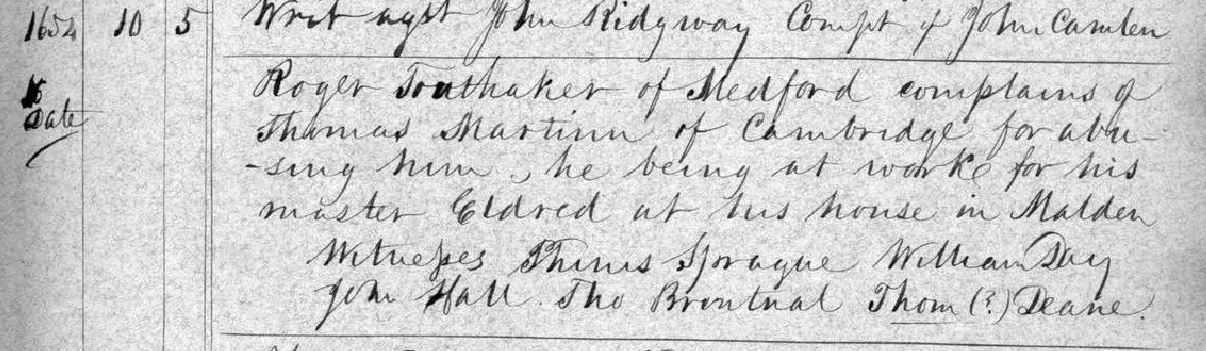 1654 10 5 Writ agst John Ridgway Compt of John Camden
Date
Roger Touthaker of Medford complains of
Thomas Martinn of Cambridge for abu-
-sing him, he being at worke for his
master Eldred at his house in Malden
Witnesses Thims Sprague William Day
John Hall. Tho Brontnal Thom (?) Deane.